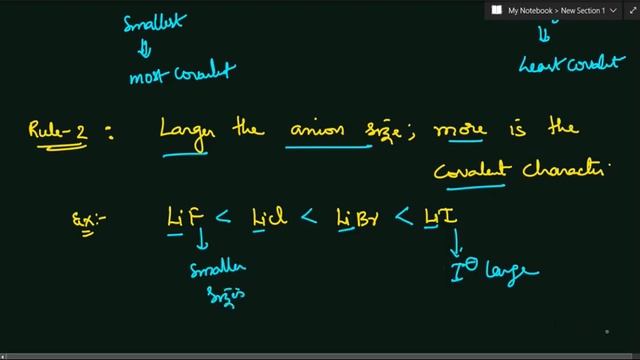 My Notebook > New Section 1
Smallest
most covalent
Least covalent
Rule-2 : Larger the anion size; more is the
covalent character.
Ex:- LiF < LiCl < LiBr < LiI
Smaller
size
I⊖ large